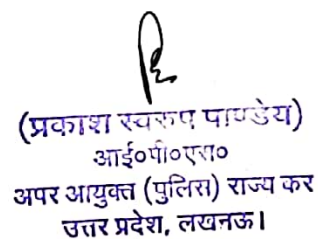 (प्रकाश स्वरूप पाण्डेय)
आई०पी०एस०
अपर आयुक्त (पुलिस) राज्य कर
उत्तर प्रदेश, लखनऊ।